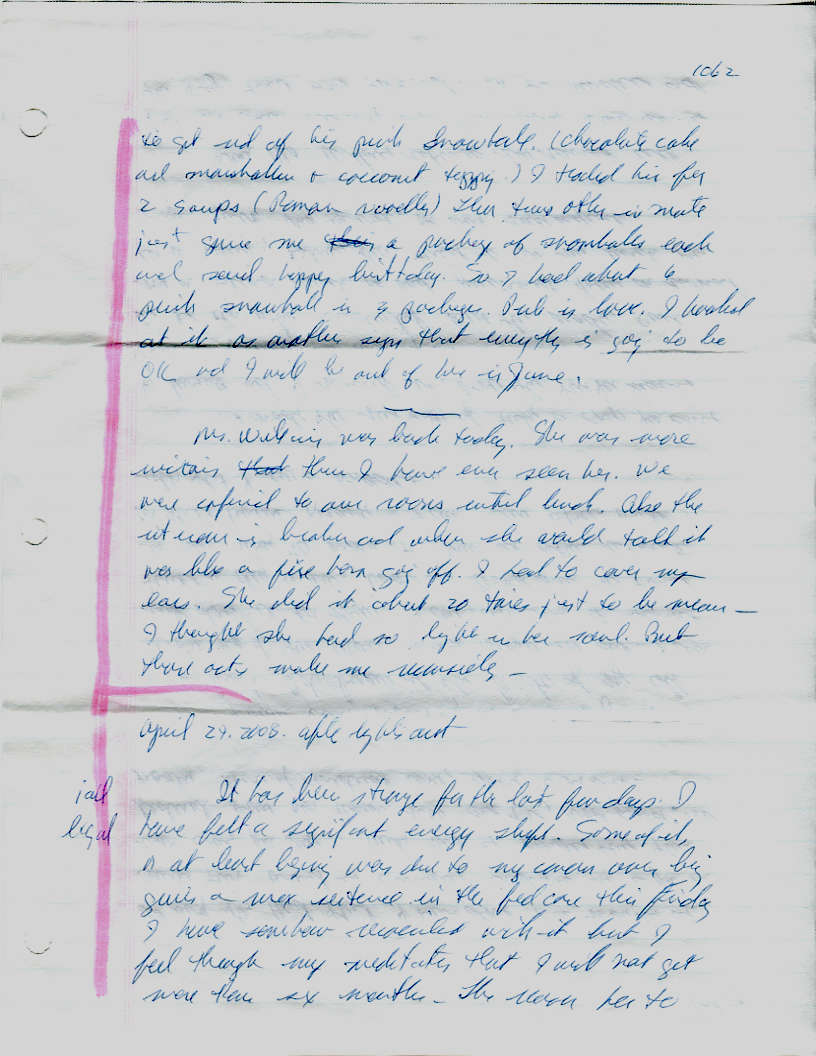 1062
to get rid of his pink Snowballs. (chocolate cake
and marshmallow + coconut topping.) I traded his for
2 soups (Raman noodles) then two other inmate
just gave me a package of snowballs each
and said happy birthday. So I had about 6
pink snowballs in 3 packages. Pink is love. I looked
at it as another sign that everything is going to be
OK and I will be out of here in June.
Ms. Wilkins was back today. She was more
than I have ever seen her. We
were confined to our rooms until lunch. Also the
intercom is broken and when she would talk it
was like a fire horn going off. I had to cover my
ears. She did it about 20 times just to be mean —
I thought she had so light in her soul. But
those acts make me
April 29. 2008. after lights out
jail
legal
It has been strange for the last few days. I
have felt a significant energy shift. Some of it,
or at least begining was due to my concern over being
given a max sentence in the fed case this Friday
I have somehow reconciled with it but I
feel through my meditation that I will not get
more than six months — The reason has to